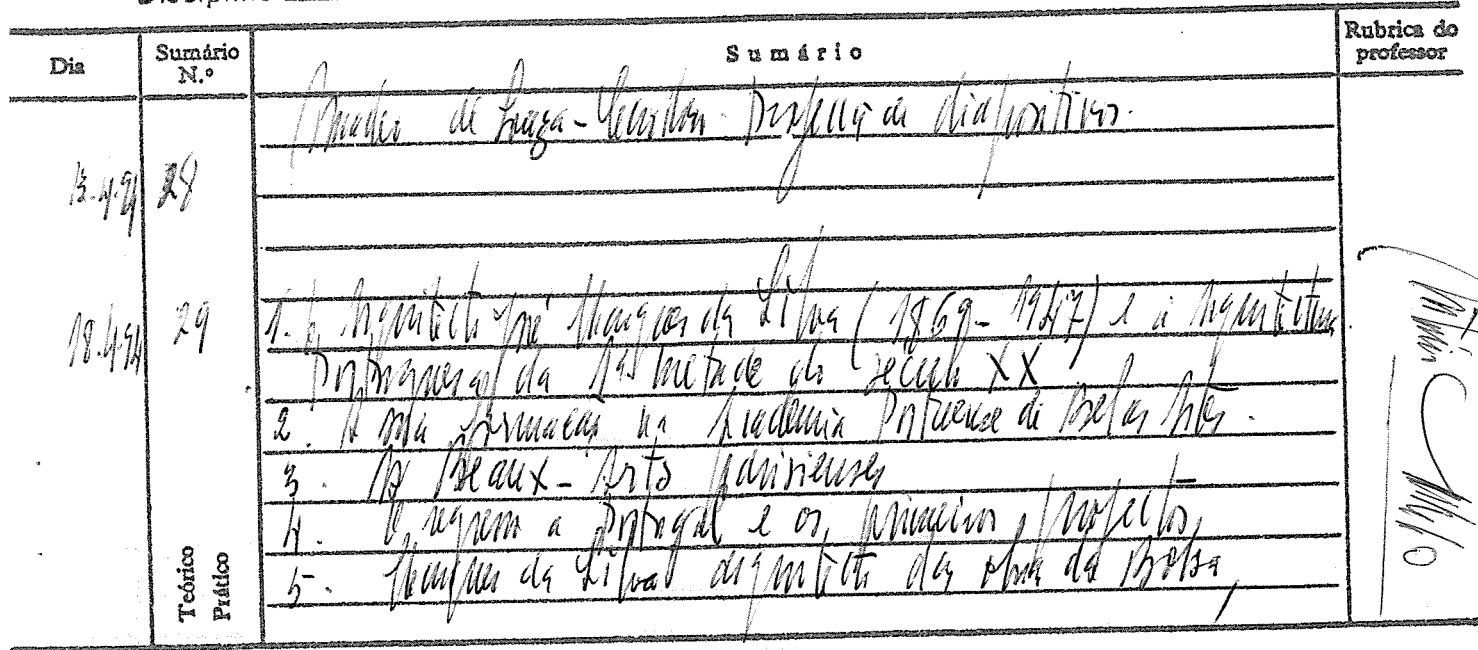 Dia
Sumário N.º
Sumário
Rubrica do professor
Amadeo de Souza-Cardoso. Projecção de diapositivos.
13.4.94 28
18.4.94 29 1. O Arquitecto José Marques da Silva (1869-1947) e a Arquitectura
Portuguesa da 1ª metade do século XX
2. A sua formação na Academia Portuense de Belas Artes.
3. As Beaux-Arts parisienses
4. O regresso a Portugal e os primeiros projectos,
5. Marques da Silva arquitecto da obra da Bolsa,
Teórico
Prático